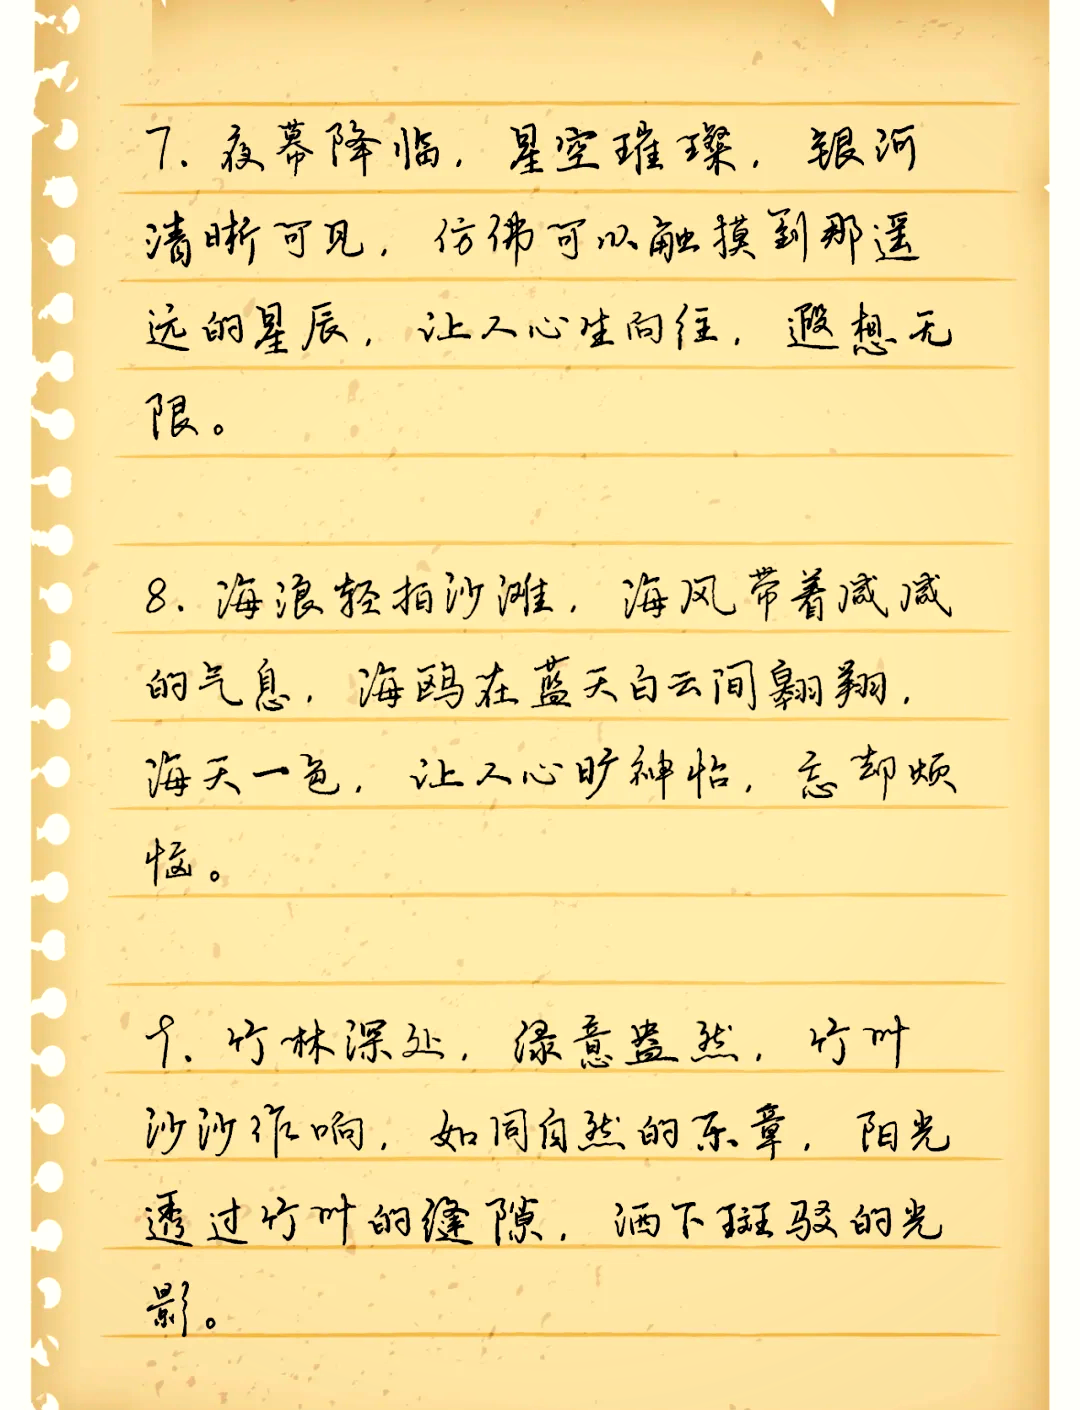 7. 夜幕降临，星空璀璨，银河
清晰可见，仿佛可以触摸到那遥
远的星辰，让人心生向往，遐想无
限。
8. 海浪轻拍沙滩，海风带着咸咸
的气息，海鸥在蓝天白云间翱翔，
海天一色，让人心旷神怡，忘却烦
恼。
9. 竹林深处，绿意盎然，竹叶
沙沙作响，如同自然的乐章，阳光
透过竹叶的缝隙，洒下斑驳的光
影。